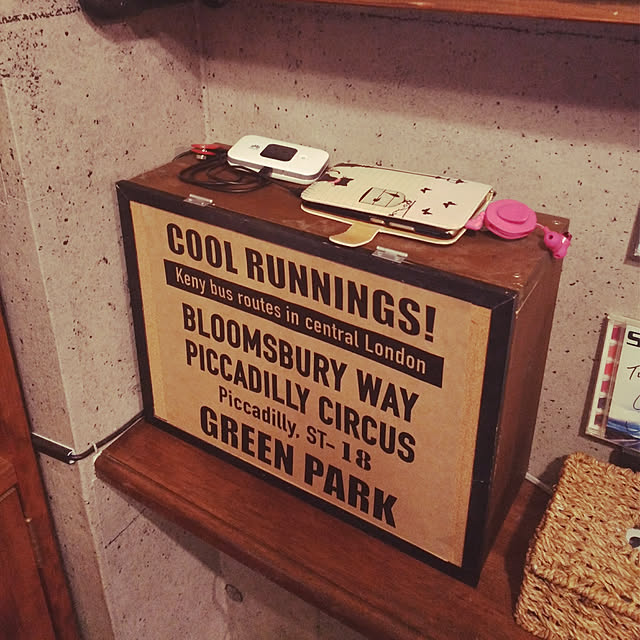 COOL RUNNINGS!
Keny bus routes in central London
BLOOMSBURY WAY
PICCADILLY CIRCUS
Piccadilly, ST-18
GREEN PARK